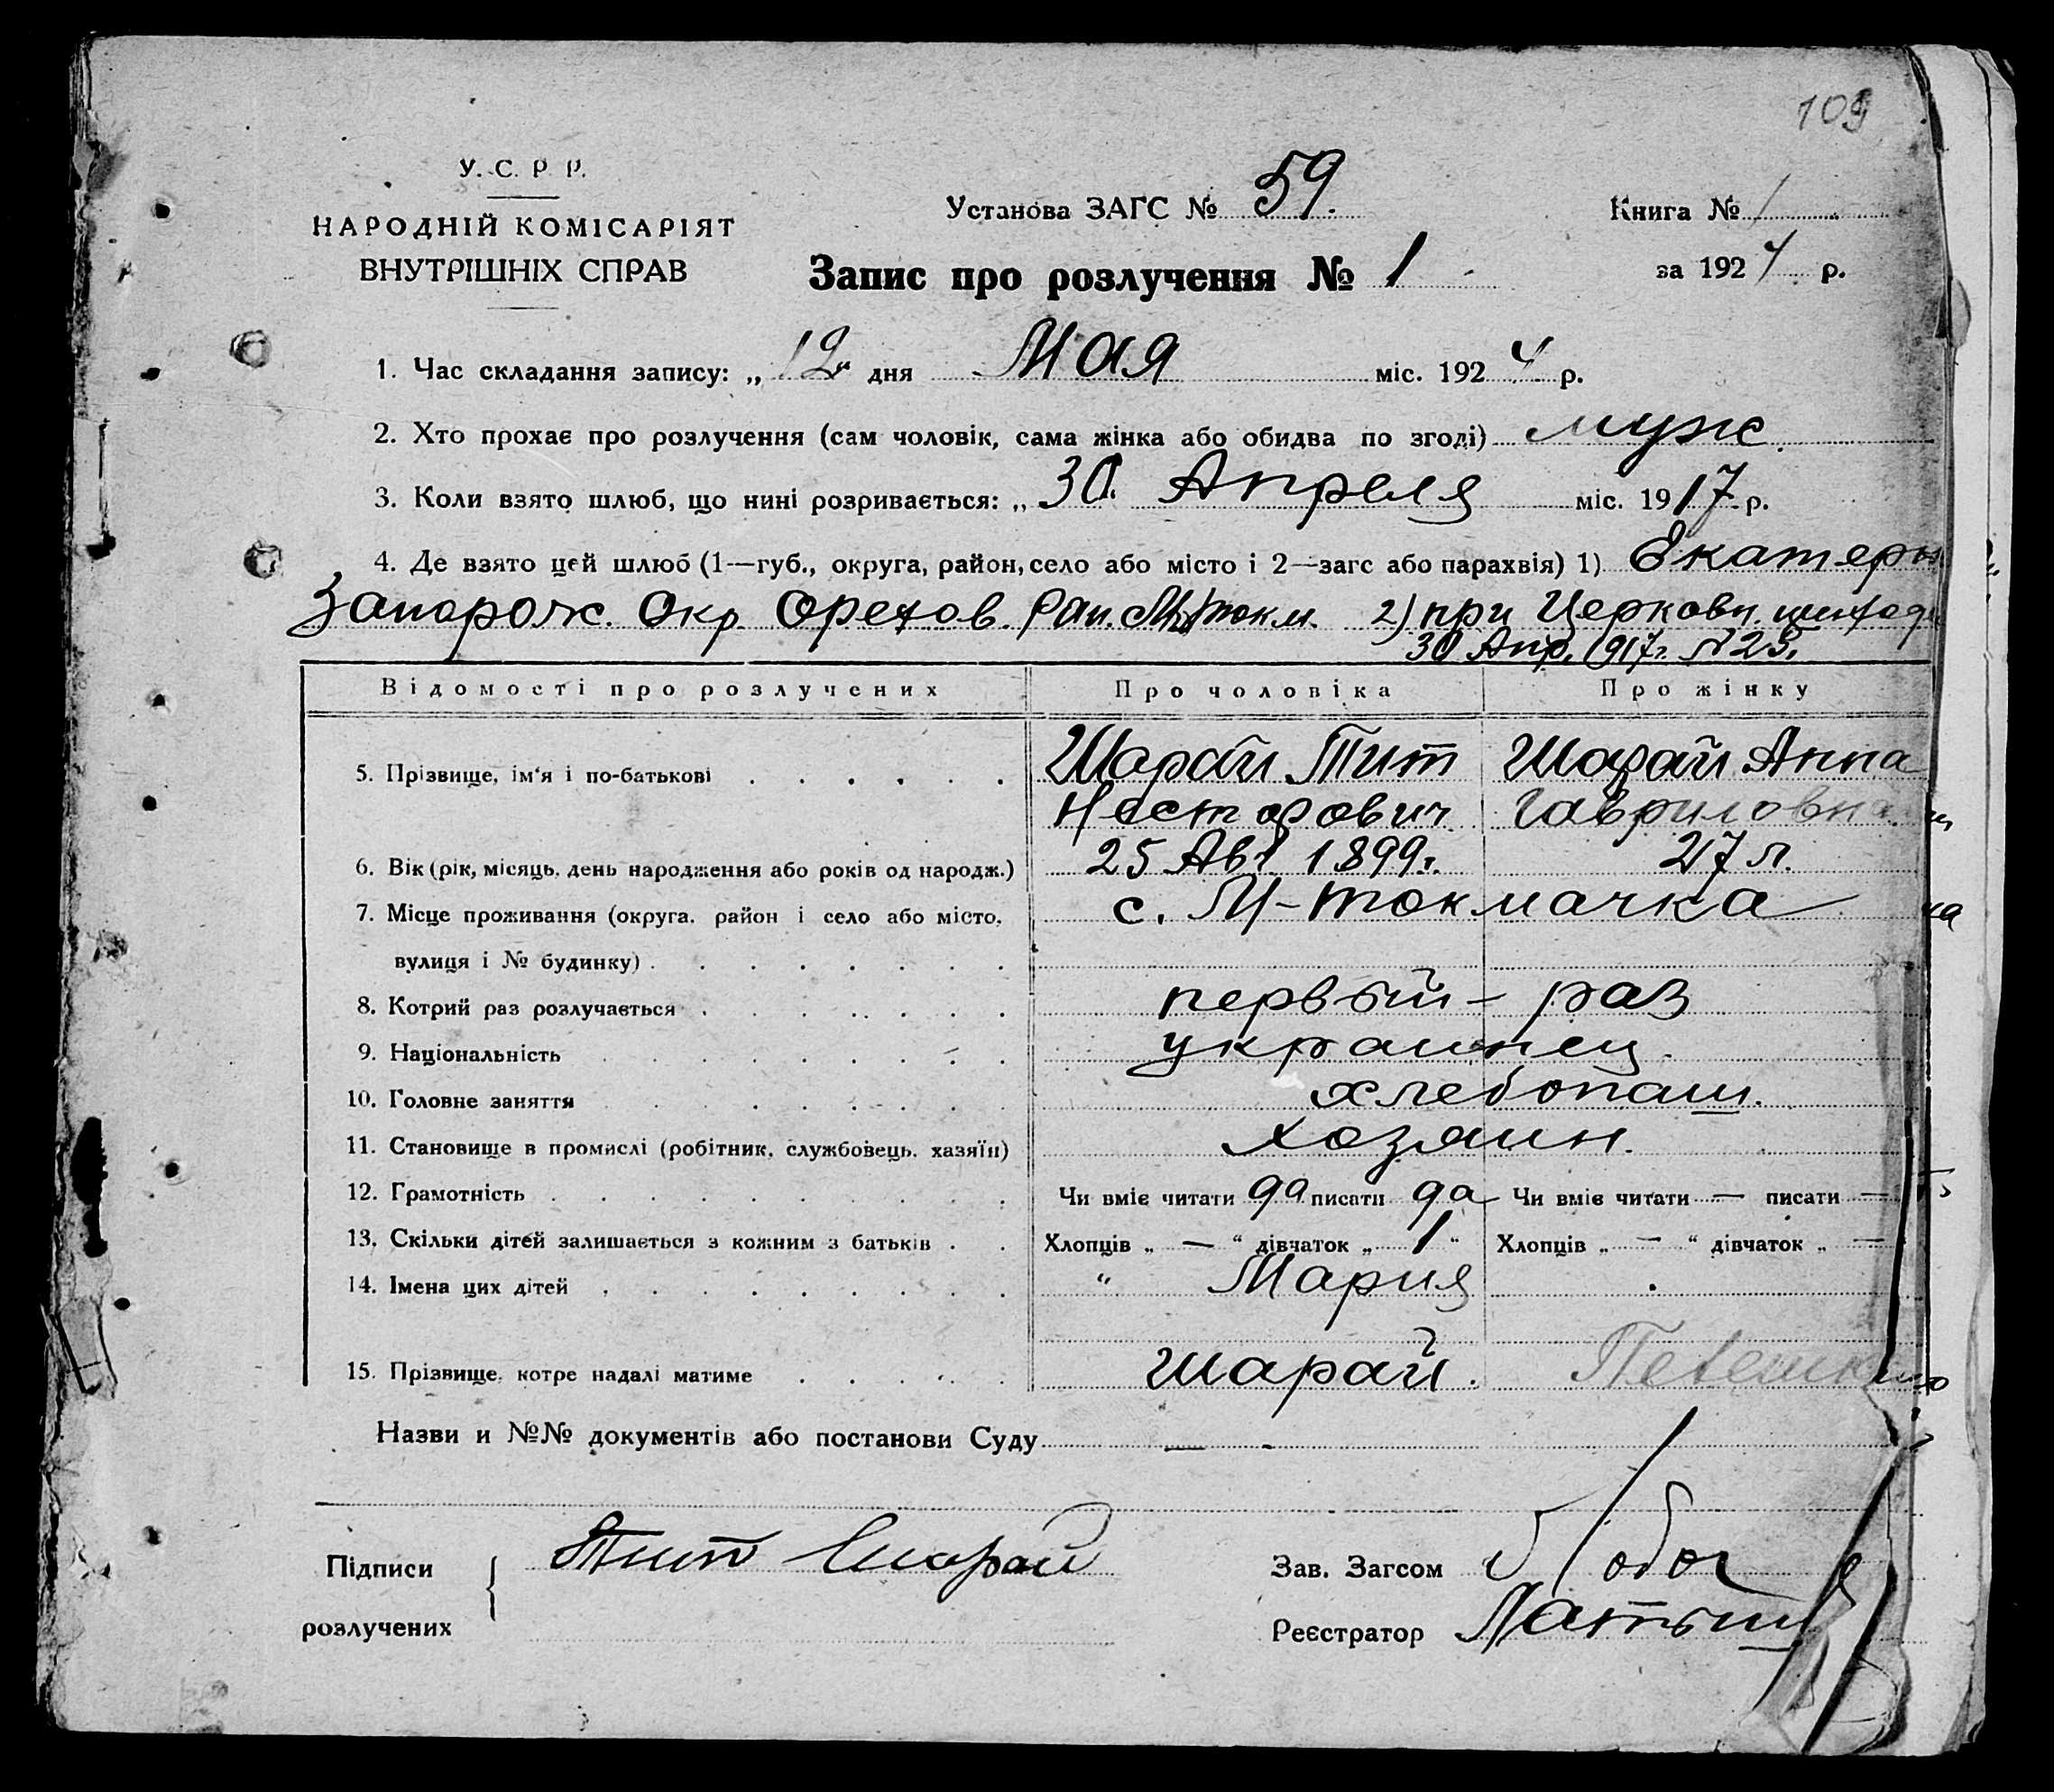 109
У. С. Р. Р.
НАРОДНІЙ КОМІСАРІЯТ
ВНУТРІШНІХ СПРАВ
Установа ЗАГС № 59.
Книга № 1
за 1924 р.
Запис про розлучення № 1
1. Час складання запису: „ 12 " дня Мая міс. 1924 р.
2. Хто прохає про розлучення (сам чоловік, сама жінка або обидва по згоді) муж.
3. Коли взято шлюб, що нині розривається: „ 30. Апреля міс. 1917 р.
4. Де взято цей шлюб (1—губ., округа, район, село або місто і 2—загс або парахвія) 1) Екатерин
Запорож. Окр. Орехов. Рай. 2) при Церковн.
30 Апр. 1917г. №23.
Відомості про розлучених Про чоловіка Про жінку
5. Прізвище, ім'я і по-батькові Шарай Тит Шарай Анна
Несторович Гавриловна
6. Вік (рік, місяць, день народження або років од народж.) 25 Авг 1899г. 27 л.
7. Місце проживання (округа, район і село або місто, с. М-Токмачка
вулиця і № будинку)
8. Котрий раз розлучається первый – раз
9. Національність украинец.
10. Головне заняття хлебопаш.
11. Становище в промислі (робітник, службовець, хазяїн) хозяин.
12. Грамотність Чи вміє читати да писати да Чи вміє читати — писати —
13. Скільки дітей залишається з кожним з батьків Хлопців „ — “ дівчаток „ 1 “ Хлопців „ — “ дівчаток „ —
14. Імена цих дітей “ Мария
15. Прізвище, котре надалі матиме Шарай.
Назви и №№ документів або постанови Суду —
Підписи
розлучених
Тит Шарай
Зав. Загсом
Реєстратор